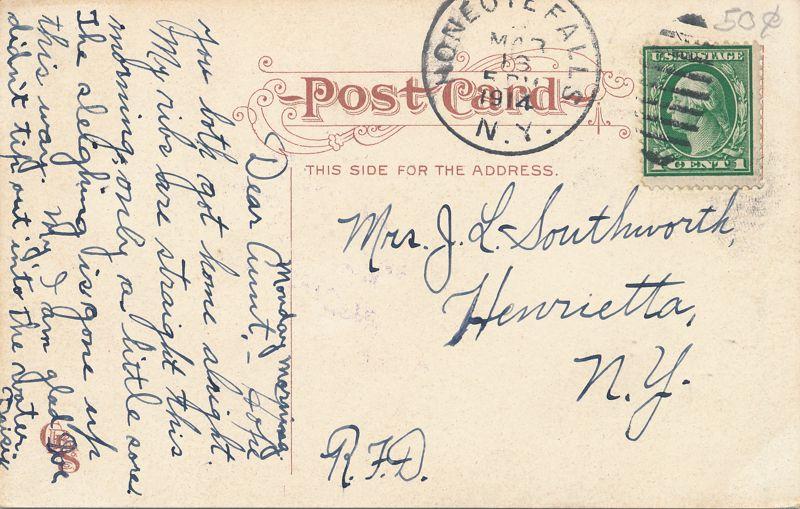 Monday morning.
Dear Aunt, - Hope
you both got home alright.
My ribs are straight this
morning, only a little sore.
The sleighing is gone up
this way. My I am glad we
didn't tip out into the water.
Daisy
Post Card
THIS SIDE FOR THE ADDRESS.
HONEOYE FALLS
MAR
5 PM
1914
N.Y.
50¢
U.S. POSTAGE
1 CENT 1
Mrs. J. L. Southworth,
Henrietta,
N.Y.
R.F.D.